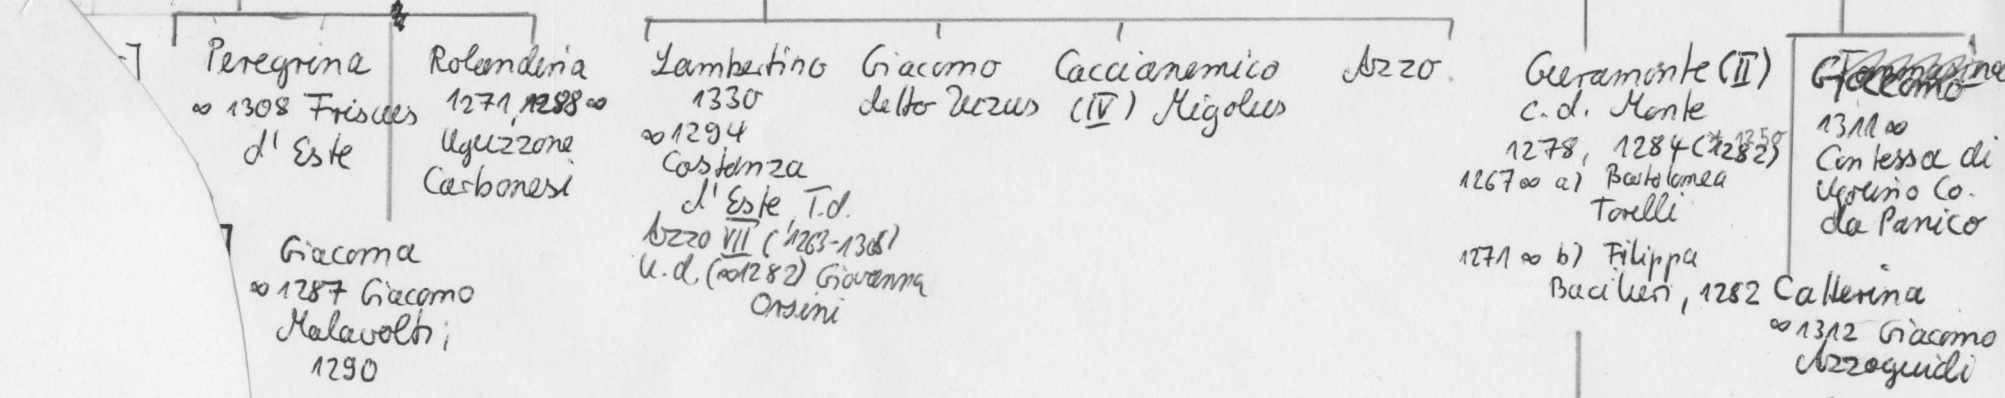 Peregrina
∞ 1308 Friscus
d'Este
Rolandina
1271, 1288 ∞
Uguzzone
Carbonesi
Giacoma
∞ 1287 Giacomo
Malavolti;
1290
Lambertino
1330
∞ 1294
Costanza
d'Este, T.d.
Azzo VII (1263-1308)
u.d. (∞1282) Giovanna
Orsini
Giacomo
detto Zuzus
Caccianemico
(IV) Migolus
Azzo
Gueramonte (II)
c.d. Monte
1278, 1284 (1282)
1267 ∞ a) Bartolomea
Torelli
1271 ∞ b) Filippa
Bacilieri, 1282
1311 ∞
Contessa di
Ugolino Co.
da Panico
Catterina
∞ 1312 Giacomo
Azzoguidi